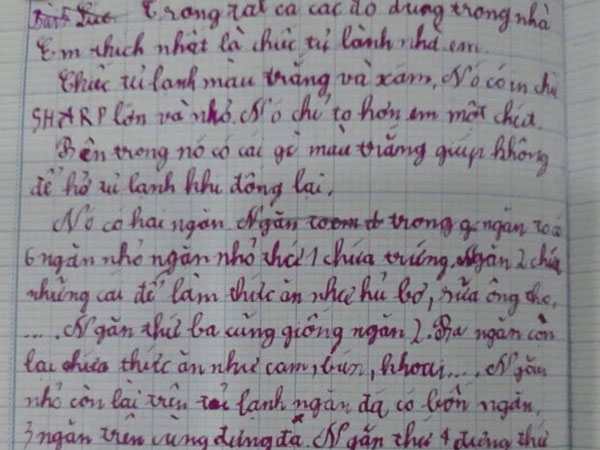 Bài Làm Trong tất cả các đồ dùng trong nhà
Em thích nhật là chiếc tủ lành nhà em.
Chiếc tủ lanh màu trắng và xám. Nó có in chữ
SHARP lớn và nhỏ. Nó chỉ to hơn em một chút.
Bên trong nó có cái gì màu trắng giúp không
để hở tủ lạnh khi đông lại.
Nó có hai ngăn trong ngăn to có
6 ngăn nhỏ ngăn nhỏ thứ 1 chứa trứng. Ngăn 2 chứa
những cái để làm thức ăn như hủ bơ, sữa ông thọ,
.... Ngăn thứ ba cũng giống ngăn 2. Ba ngăn còn
lại chứa thức ăn như cam, bún, khoai .... Ngăn
nhỏ còn lài trên tủ lạnh ngăn đá có bốn ngăn,
3 ngăn trên cùng đựng đá. Ngăn thứ 4 đựng thứ